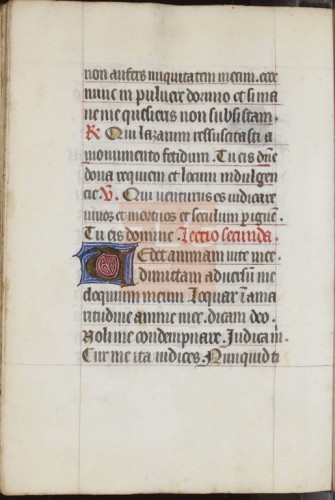 non aufers iniquitatem meam. ecce
nunc in pulvere dormio et si ma
ne me quesieris non subsistam.
R. Qui lazarum ressuscitasti a
monumento fetidum. Tu eis dñe
dona requiem et locum indulgen
cie. V. Qui venturus es iudicare
vivos et mortuos et seculum per ignẽ.
Tu eis domine. Lectio secunda.
Tedet animam vite mee.
dimittam adversũ me
eloquium meum loquar ĩ ama
ritudine anime mee. dicam deo.
Noli me condempnare. Iudica m̃.
Cur me ita iudices. Nunquid ti